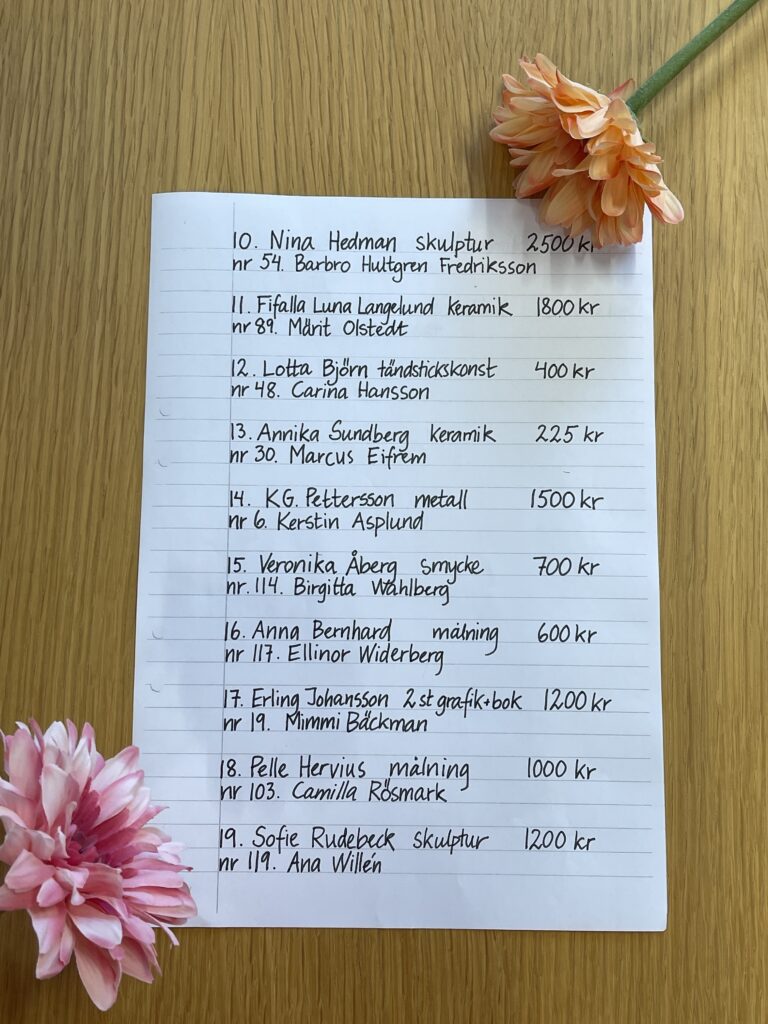 10. Nina Hedman skulptur 2500 kr
nr 54. Barbro Hultgren Fredriksson
11. Fifalla Luna Langelund keramik 1800 kr
nr 89. Märit Olstedt
12. Lotta Björn tändstickskonst 400 kr
nr 48. Carina Hansson
13. Annika Sundberg keramik 225 kr
nr 30. Marcus Eifrem
14. KG. Pettersson metall 1500 kr
nr 6. Kerstin Asplund
15. Veronika Åberg smycke 700 kr
nr. 114. Birgitta Wahlberg
16. Anna Bernhard målning 600 kr
nr 117. Ellinor Widerberg
17. Erling Johansson 2 st grafik+bok 1200 kr
nr 19. Mimmi Bäckman
18. Pelle Hervius målning 1000 kr
nr 103. Camilla Rösmark
19. Sofie Rudebeck skulptur 1200 kr
nr 119. Ana Willén